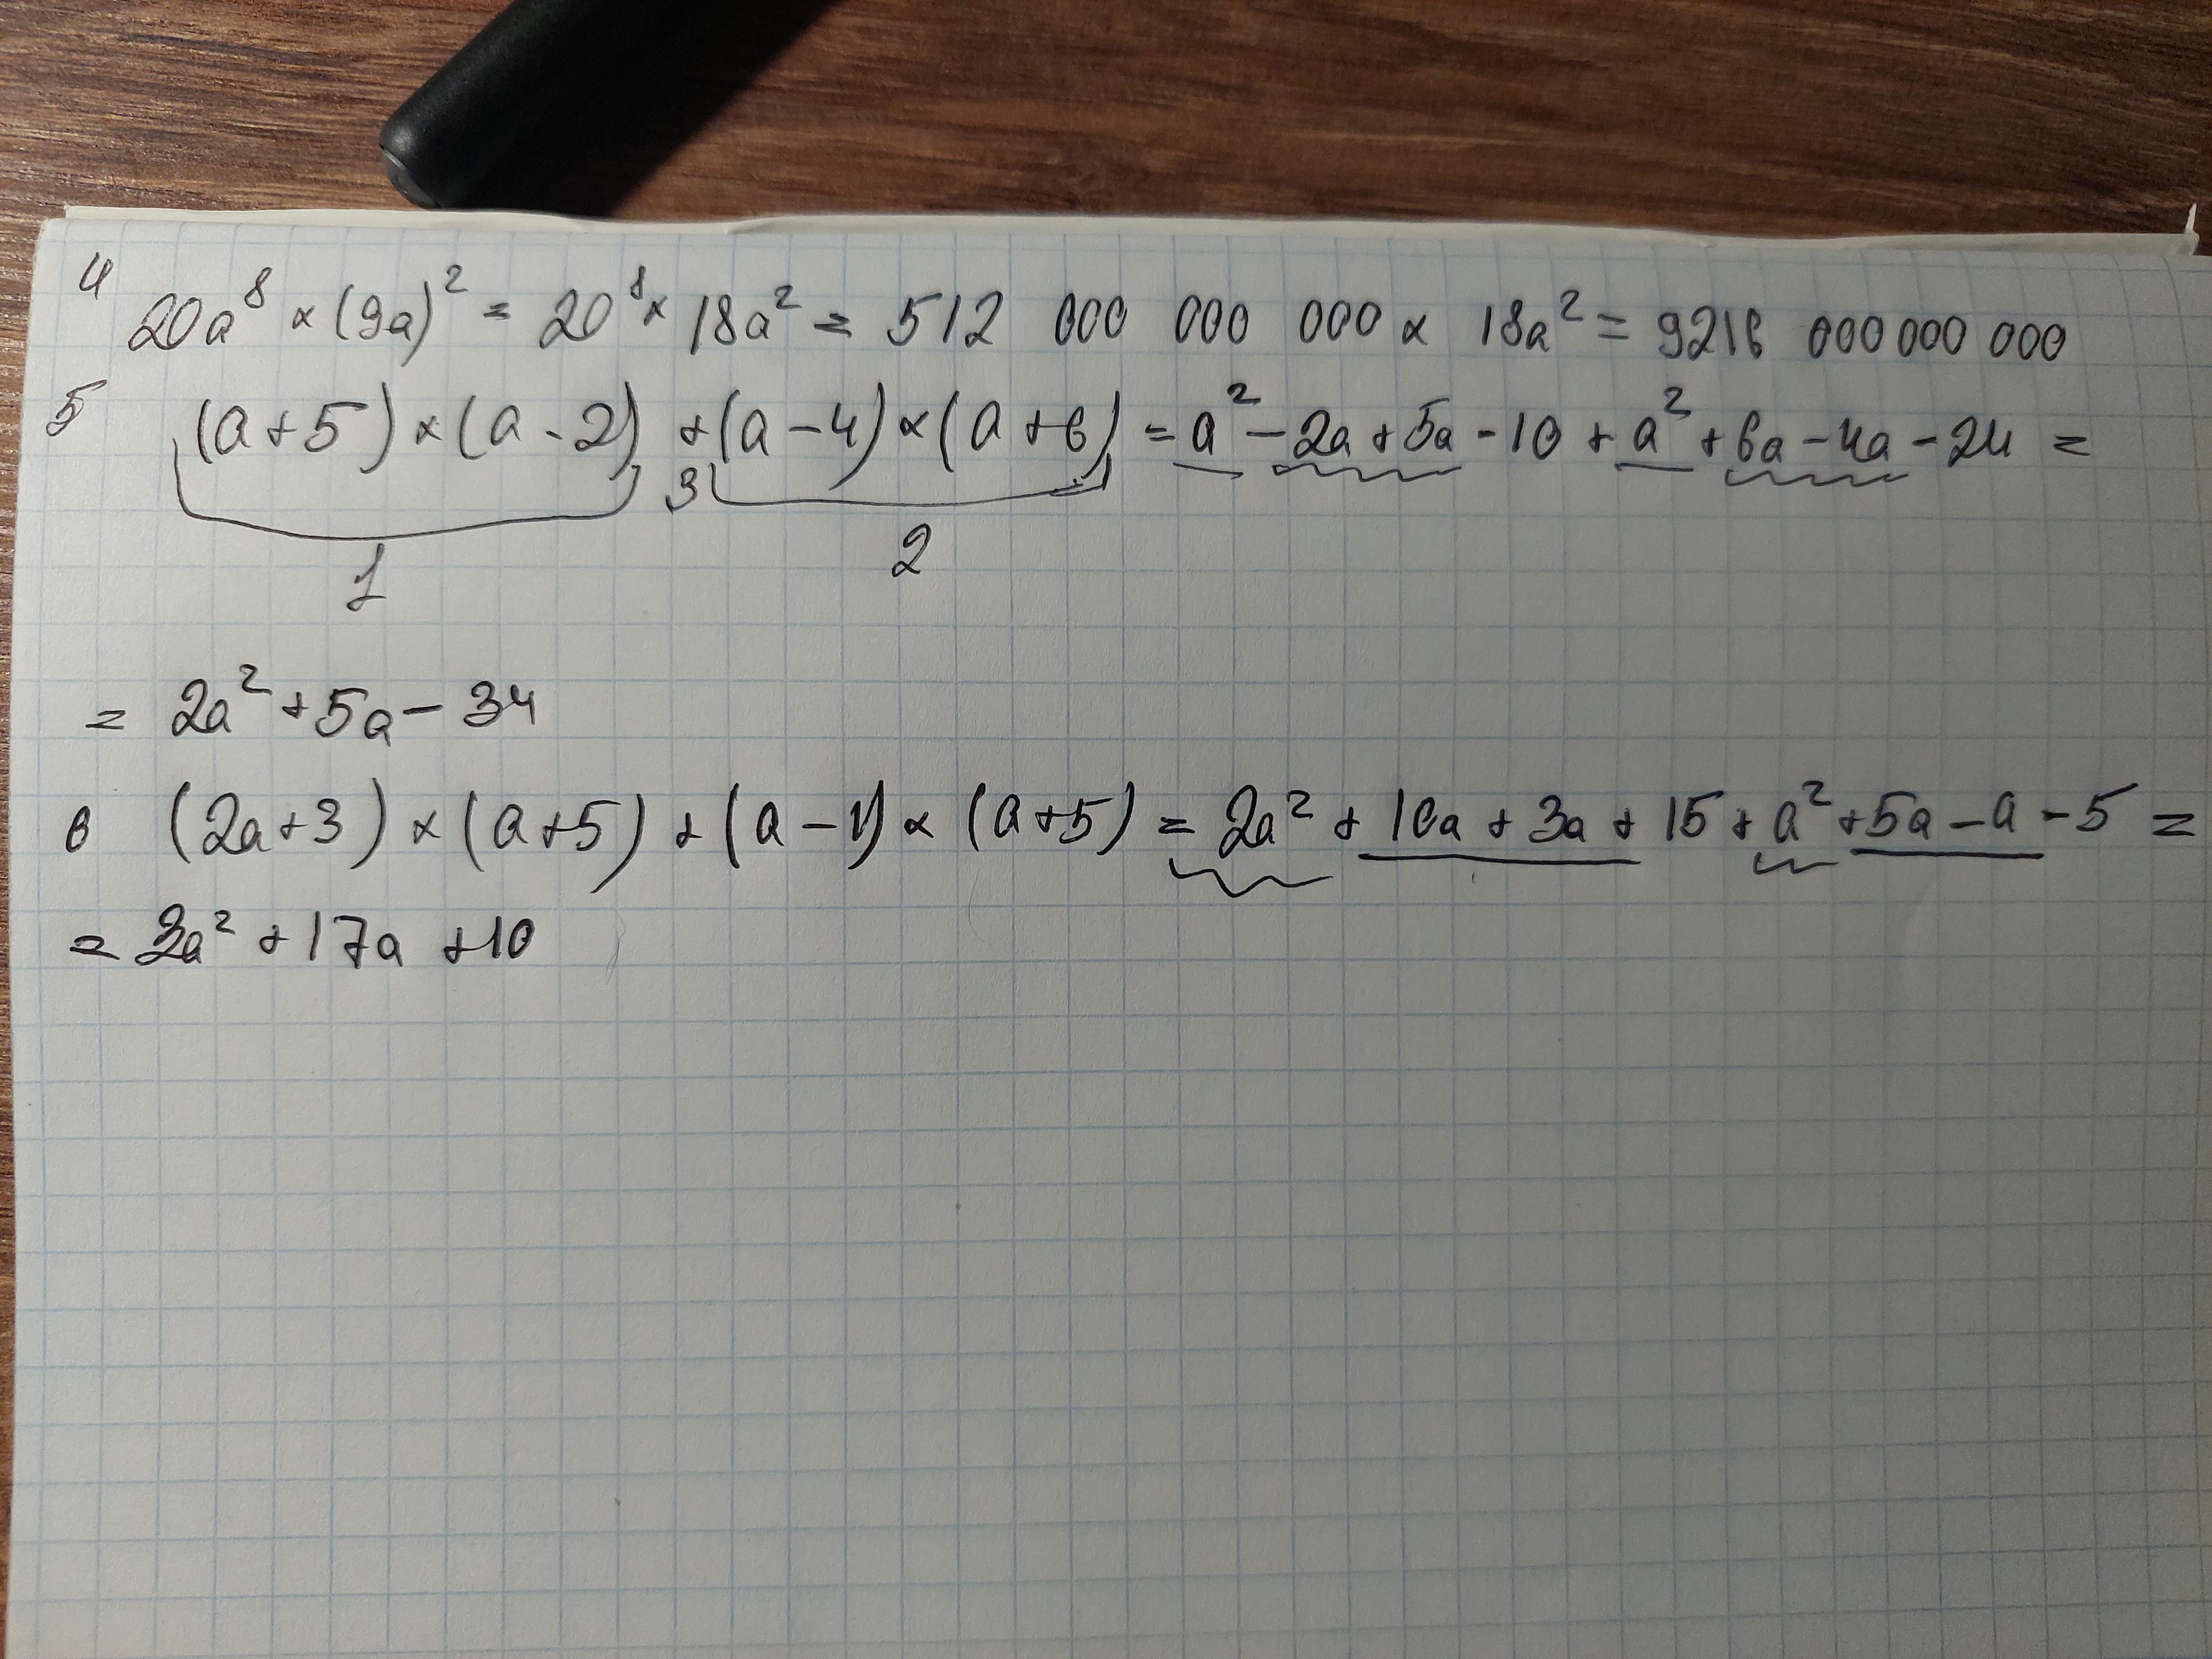 4
20a⁸ × (9a)² = 20⁸ × 18a² = 512 000 000 000 × 18a² = 9216 000 000 000
5 (a+5) × (a-2) + (a-4) × (a+6) = a² - 2a + 5a - 10 + a² + 6a - 4a - 24 =
3
1 2
= 2a² + 5a - 34
6 (2a+3) × (a+5) + (a-1) × (a+5) = 2a² + 10a + 3a + 15 + a² + 5a - a - 5 =
= 3a² + 17a + 10